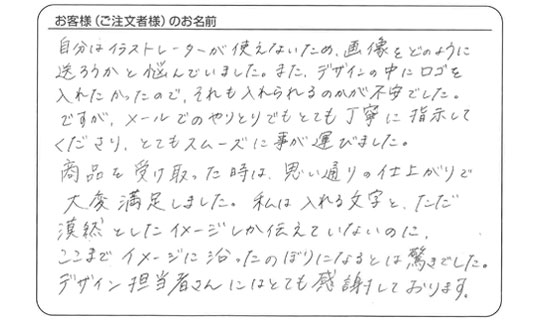 お客様（ご注文者様）のお名前
自分はイラストレーターが使えないため、画像をどのように
送ろうかと悩んでいました。また、デザインの中にロゴを
入れたかったので、それも入れられるのかが不安でした。
ですが、メールでのやりとりでもとても丁寧に指示して
くださり、とてもスムーズに事が運びました。
商品を受け取った時は、思い通りの仕上がりで
大変満足しました。私は入れる文字と、ただ
漠然としたイメージしか伝えていないのに、
ここまでイメージに沿ったのぼりになるとは驚きでした。
デザイン担当者さんにはとても感謝しております。